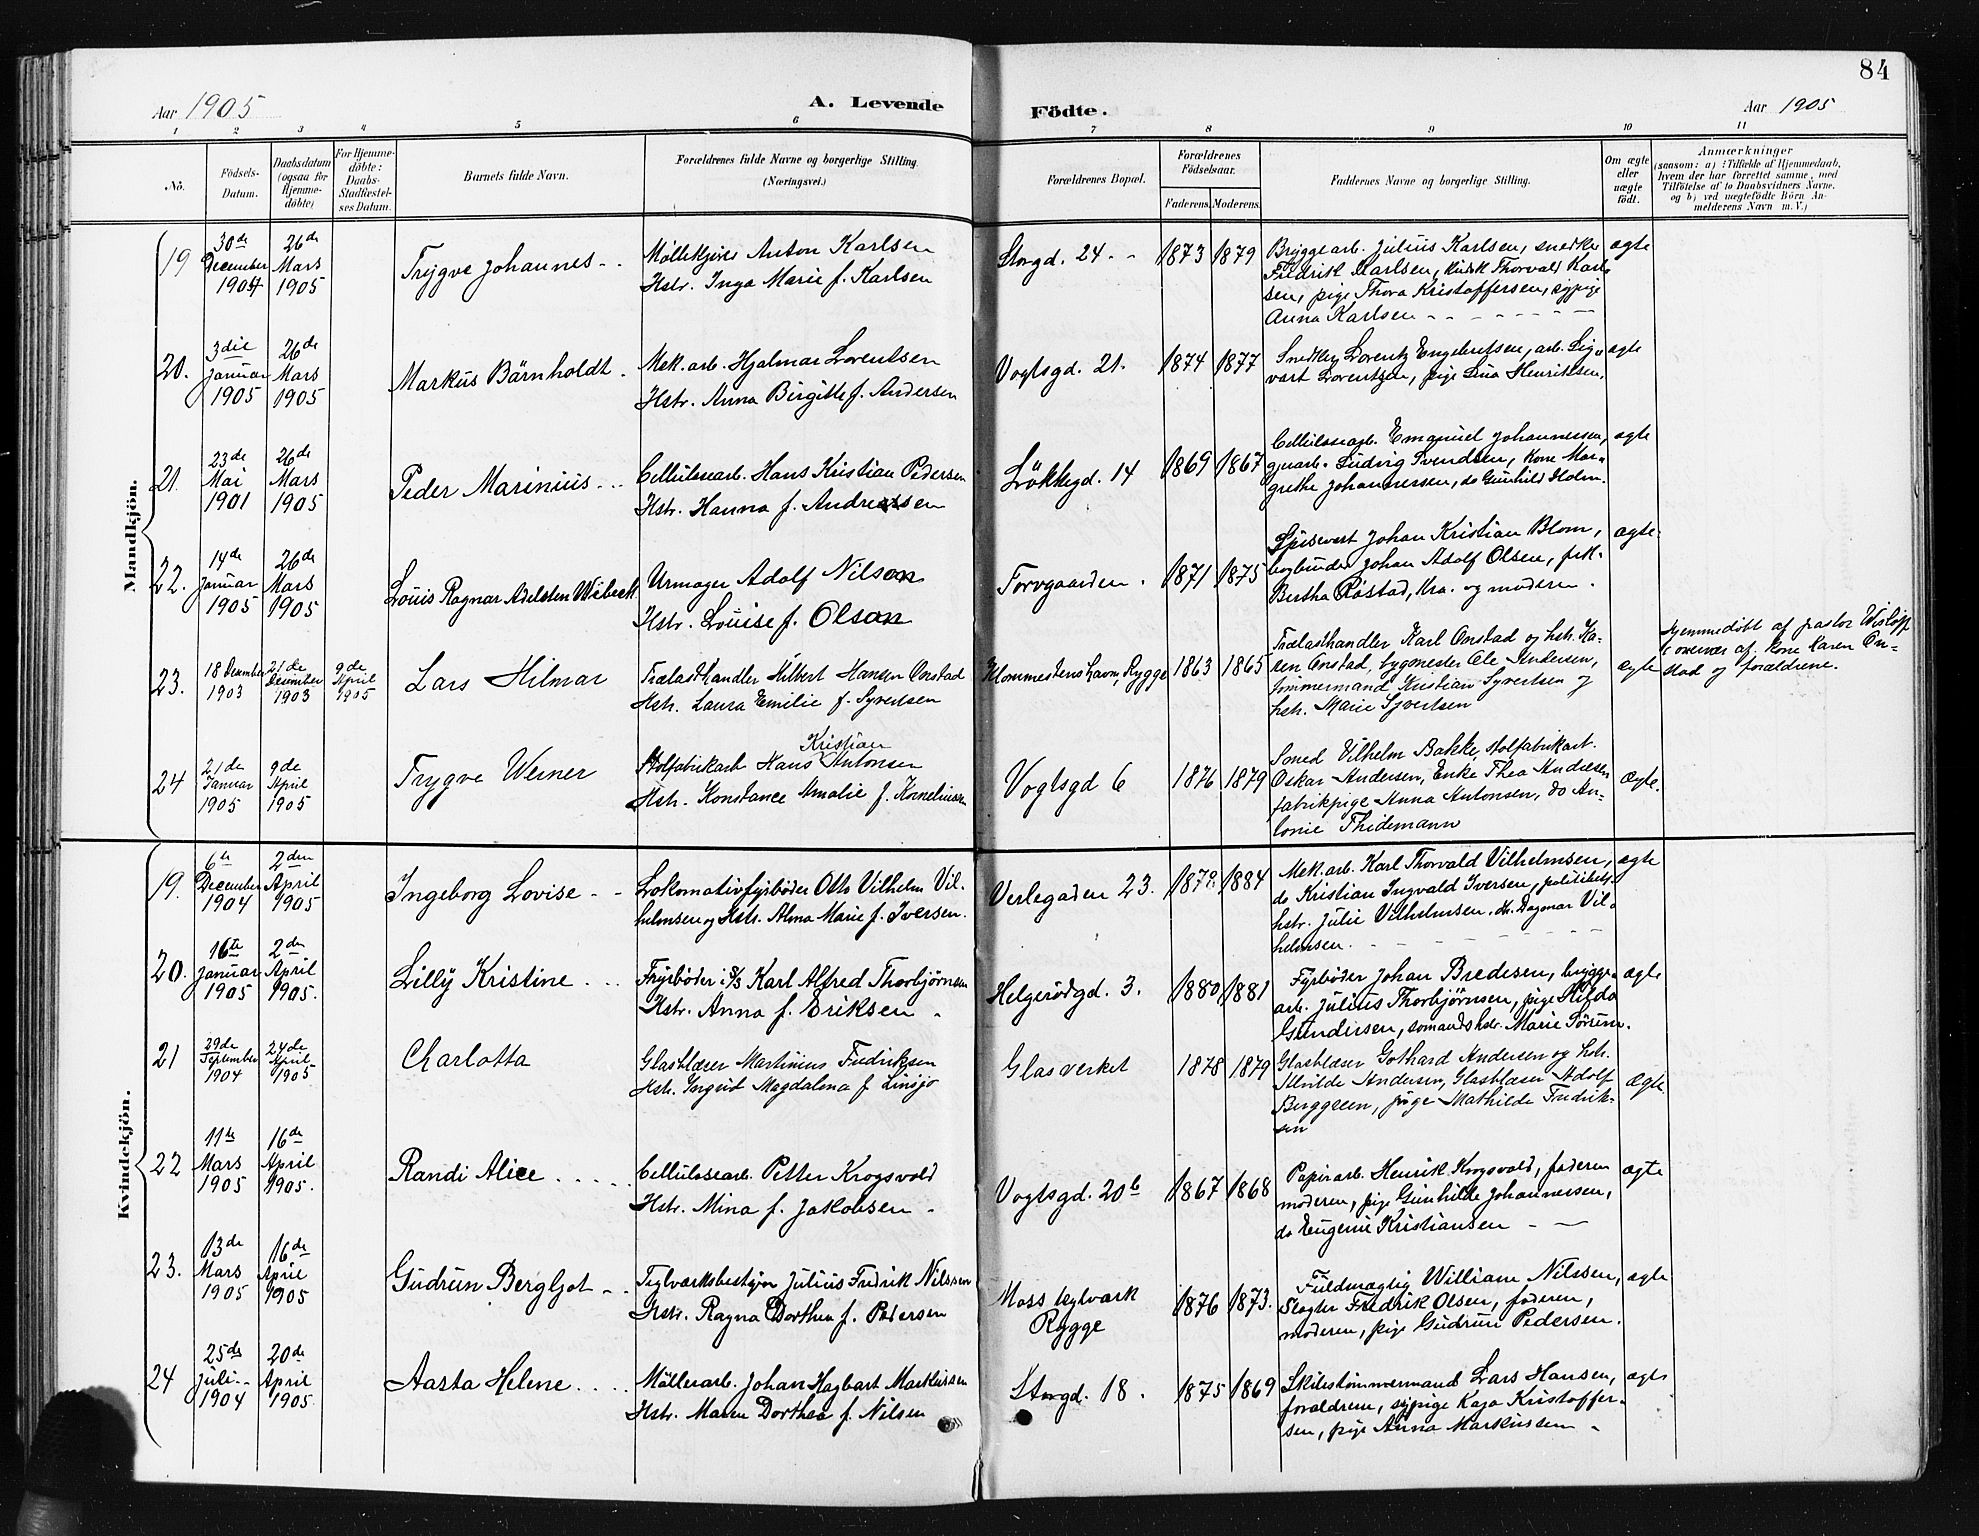 84
Aar 1905
A. Levende
Födte.
Aar 1905
1 2 3 4 5 6 7 8 9 10 11
No.
Födsels-
Datum.
Daabsdatum
(ogsaa for
Hjemme-
döbte)
For Hjemme-
döbte:
Daabs-
Stadfæstel-
ses Datum.
Barnets fulde Navn.
Forældrenes fulde Navne og borgerlige Stilling.
(Næringsvei.)
Forældrenes Bopæl.
Forældrenes
Födselsaar.
Faderens.
Moderens.
Faddernes Navne og borgerlige Stilling.
Om ægte
eller
uægte
födt.
Anmærkninger
(saasom: a) : Tilfælde af Hjemmedaab,
hvem der har forrettet samme, med
Tilföielse af to Daabsvidners Navne,
og b) ved uægtefödte Börn An-
melderens Navn m. V.)
Mandkjön.
19
30de
December
1904
26de
Mars
1905
Trygve Johannes
Möllekjörer Anton Karlsen
Hstr. Inga Marie f. Karlsen
Storgd. 24
1873
1879
Bryggearb. Julius Karlsen, snedker
Fredrik Karlsen, kusk Thorvald Karl-
sen, pige Thora Kristoffersen, sypige
Anna Karlsen
ægte
20.
3die
Januar
1905
26de
Mars
1905
Markus Bärnholdt.
Mek. arb. Hjalmar Lorentsen
Hstr. Anna Birgitte f. Andersen
Vogtsgd. 21.
1874
1877
Snedker Lorentz Engebretsen, arb. Sig-
vart Lorentzen, pige Lina Henriksen.
ægte
21.
23de
Mai
1901
26de
Mars
1905
Peder Marinius
Cellulosearb. Hans Kristian Pedersen
Hstr. Hanna f. Andreassen
Lökkegd. 14
1869
1867
Cellulosearb. Emanuel Johannessen,
Ludvig Svendsen, Kone Mar-
grethe Johannessen, do Gunhild Holm.
ægte
22.
14de
Januar
1905
26de
Mars
1905
Louis Ragnar Adelsten Wisbeck
Urmager Adolf Nilson
Hstr. Louise f. Olson
Torvgaarden.
1871
1875
Spisevert Johan Kristian Blom,
bogbinder Johan Adolf Olsen, frk.
Bertha Röstad, Kra. og moderen.
ægte.
23.
18 December
1903
21de
December
1903
9de
April
1905
Lars Hilmar
Trælasthandler Hilbert Hansen Onstad
Hstr. Laura Emilie f. Syvertsen
Klommestenshavn, Rygge
1863
1865
Trælasthandler Karl Onstad og hstr. Ka-
ren Onstad, bygmester Ole Andersen,
tømmermand Kristian Syvertsen og
hstr. Marie Syvertsen
ægte
Hjemmedöbt af pastor Wislöff
i overvær af Kone Karen On-
stad og forældrene.
24
21de
Januar
1905
9de
April
1905
Trygve Werner
Kristian
Stolfabrikarb Hans Antonsen
Hstr. Konstance Amalie f. Korneliussen
Vogtsgd 6
1876
1879
Smed Vilhelm Bakke, stolfabrikarb.
Oskar Andersen, Enke Thea Andresen
fabrikpige Anna Antonsen, do An-
tonie Thidemann
ægte.
Kvindekjön.
19.
6te
December
1904
2den
April
1905
Ingeborg Lovise
Lokomotivfyrböder Otto Vilhelm Vil-
helmsen og Hstr. Alma Marie f. Iversen.
Verlegaden 23.
1878
1884
Mek. arb. Karl Thorvald Vilhelmsen,
do Kristian Ingvald Iversen, politibetj.
hstr. Julie Vilhelmsen, do. Dagmar Vil-
helmsen.
ægte
20.
16te
Januar
1905
2den
April
1905.
Lilly Kristine
Fyrböder i S/S Karl Alfred Thorbjörnsen
Hstr. Anna f. Eriksen
Helgerödgd. 3.
1880
1881
Fyrböder Johan Bredesen, brygge-
arb. Julius Thorbjörnsen, pige Hilda
Gundersen, sömandshstr. Marie Sörum.
ægte
21
29de
September
1904
24de
April
1905
Charlotta
Glasblæser Martinius Fredriksen
Hstr. Ingrid Magdalena f. Linsjo
Glasverket
1878
1879
Glasblæser Gothard Andersen og hstr.
Alvilde Andersen, Glasblæser Adolf
Berggreen, pige Mathilde Fredrik-
sen
Ægte
22
11te
Mars
1905
16de
April
1905.
Randi Alice
Cellulosearb. Petter Krogsvold
Hstr. Mina f. Jakobsen
Vogtsgd. 20b
1867
1868
Papirarb. Henrik Krogsvold, faderen
moderen, pige Gunhilde Johannessen,
do Eugenie Kristiansen
ægte
23.
13de
Mars
1905
16de
April
1905
Gudrun Bergljot
Teglværksbestyrer Julius Fredrik Nilssen
Hstr. Ragna Dorthea f. Pedersen
Moss teglværk
Rygge
1876
1873.
Fuldmægtig William Nilssen,
Slagter Fredrik Olsen, faderen,
moderen, pige Gudrun Pedersen.
ægte
24
25de
Juli
1904
20de
April
1905.
Aasta Helene
Möllerarb. Johan Hagbart Markussen
Hstr. Maren Dorthea f. Nilsen
Storgd. 18.
1875
1869
Skibstömmermand Lars Hansen,
forældrene, sypige Kaja Kristoffer-
sen, pige Anna Markussen
ægte